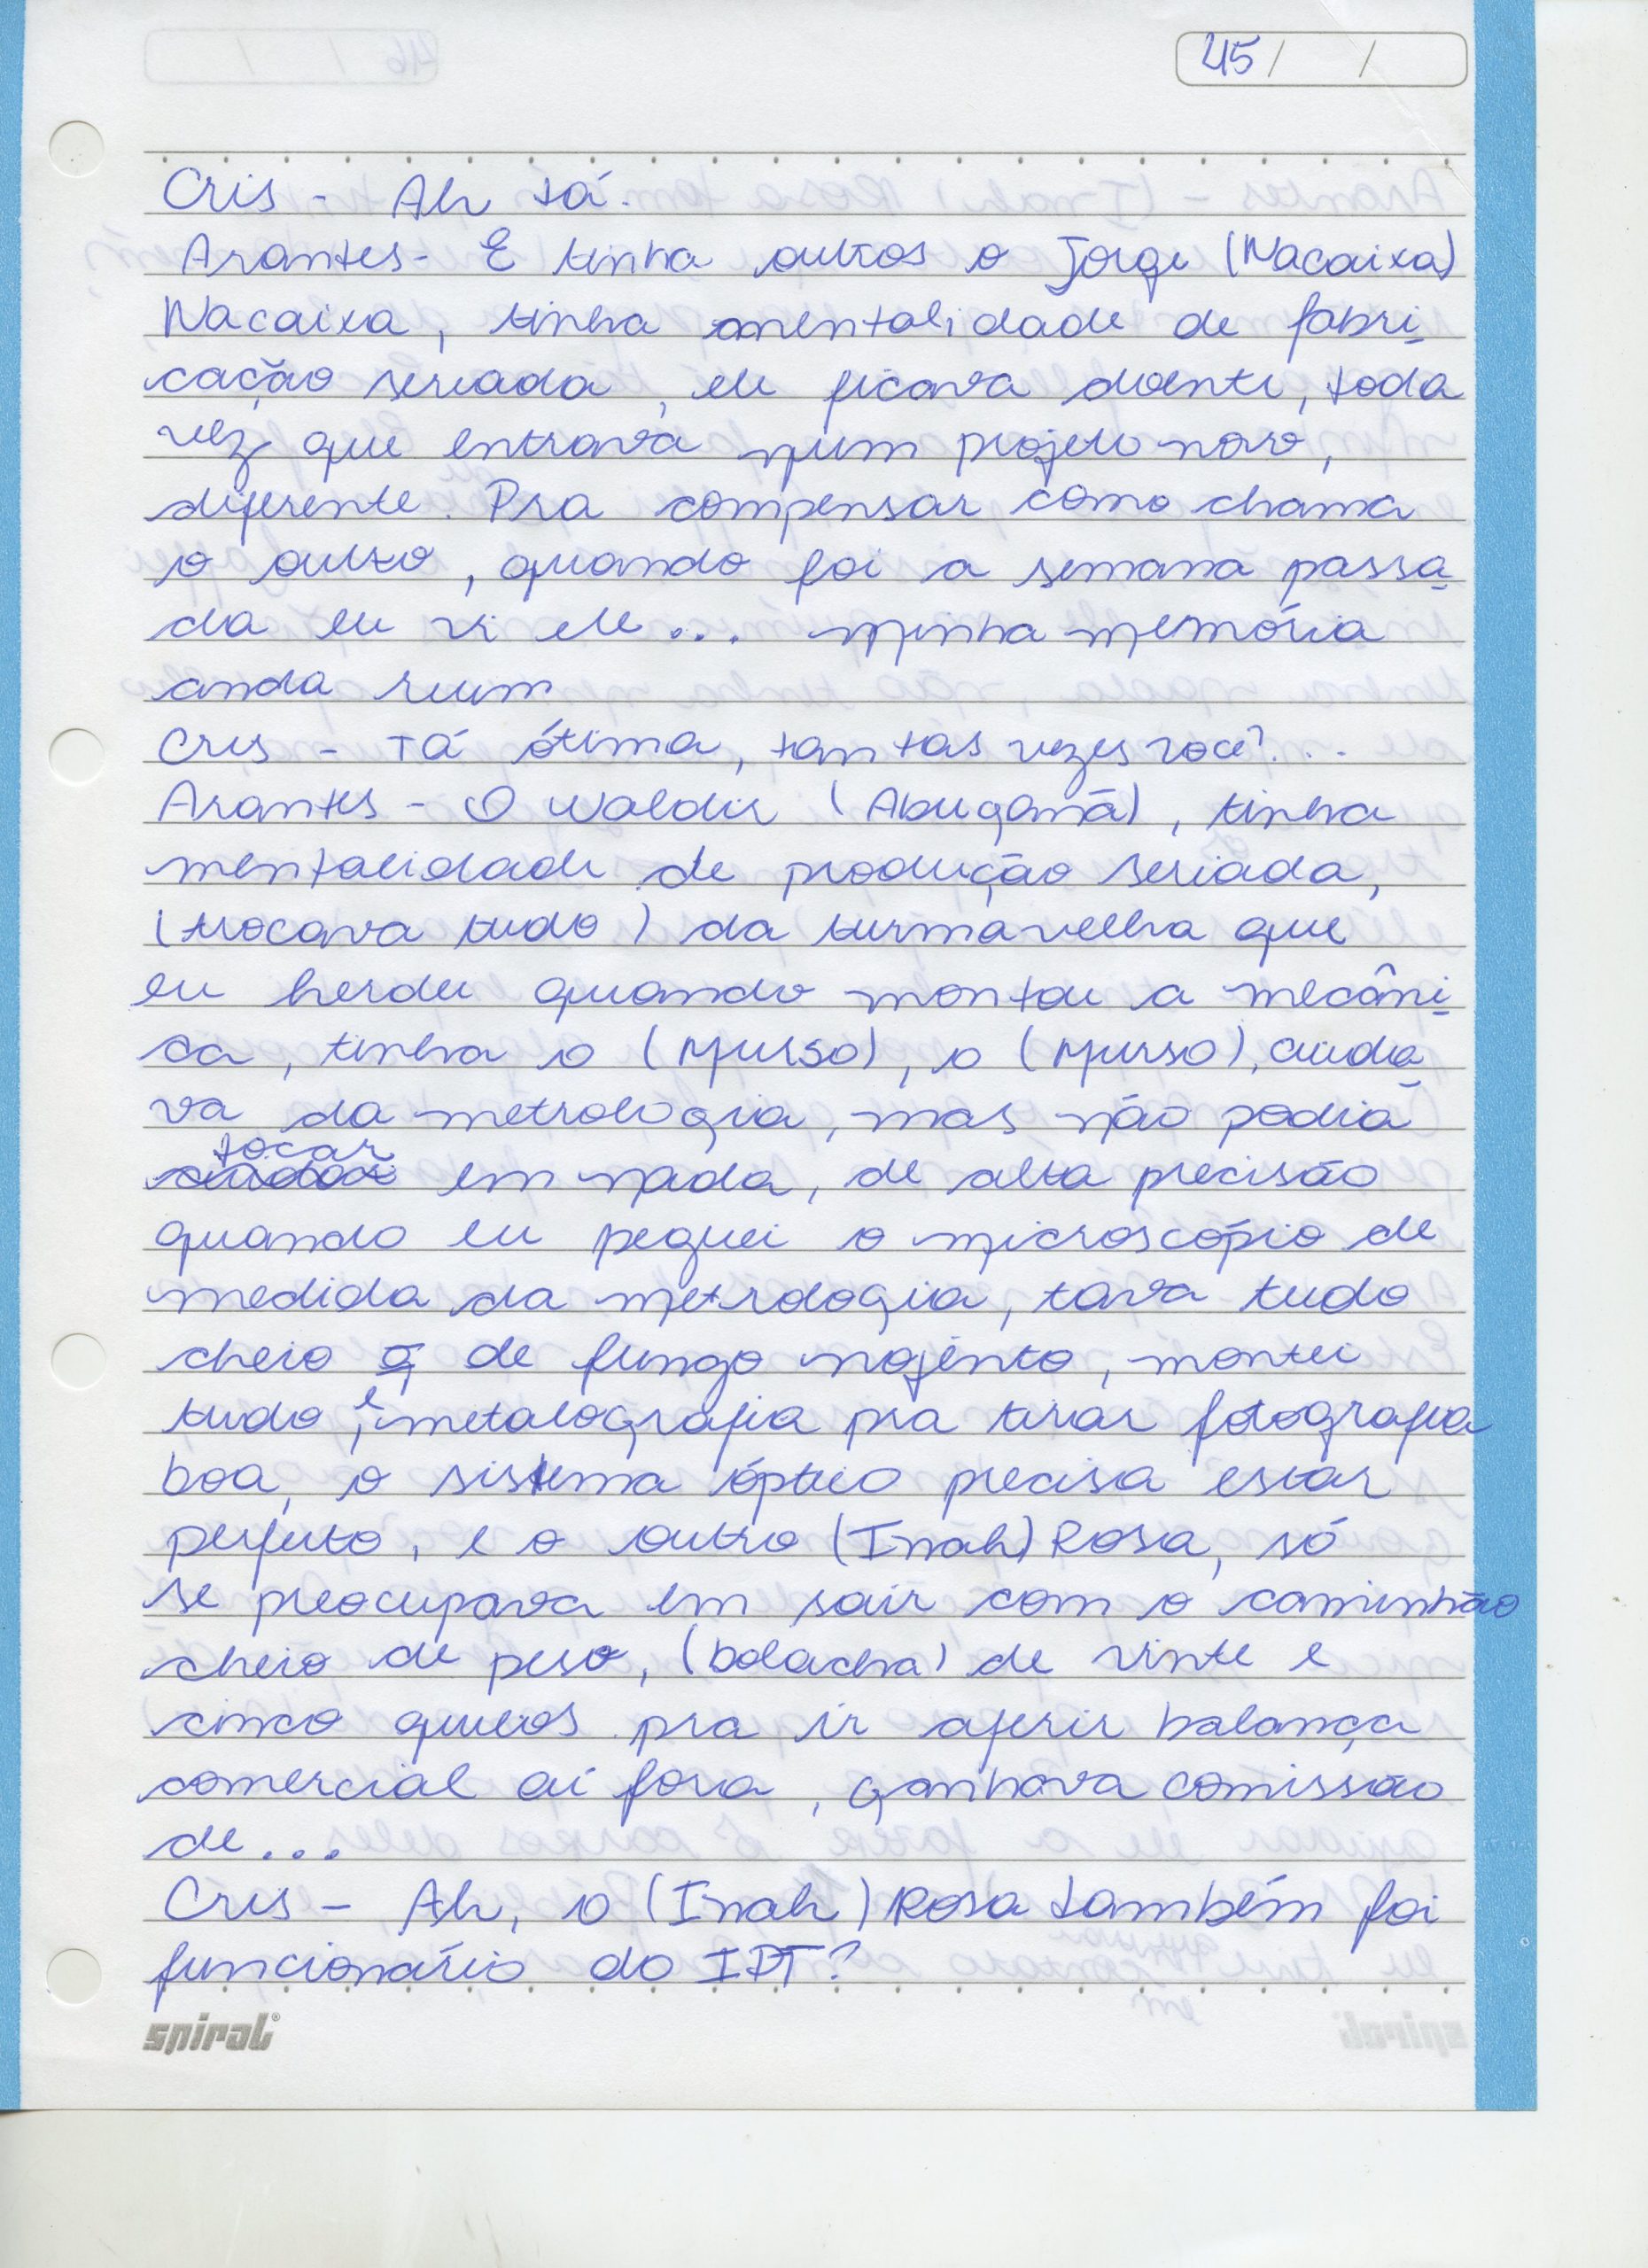 45/ /
Cris - Ah tá.
Arantes - E tinha outros o Jorge (Nacaixa)
Nacaixa, tinha mentalidade de fabri
cação seriada, ele ficava doente, toda
vez que entrava num projeto novo,
diferente. Pra compensar como chama
o outro, quando foi a semana passa
da eu vi ele... minha memória
anda ruim
Cris - Tá ótima, tantas vezes você?...
Arantes - O Waldir (Abugamã), tinha
mentalidade de produção seriada,
(trocava tudo) da turma velha que
eu herdei quando montou a mecâni
ca, tinha o (Murso), o (Murso), cuida
va da metrologia, mas não podia
tocar
em nada, de alta precisão
quando eu peguei o microscópio de
medida da metrologia, tava tudo
cheio de fungo nojento, montei
tudo, e metalografia pra tirar fotografia
boa, o sistema óptico precisa estar
perfeito, e o outro (Inah) Rosa, só
se preocupava em sair com o caminhão
cheio de peso, (bolacha) de vinte e
cinco quilos pra ir aferir balança
comercial aí fora, ganhava comissão
de...
Cris - Ah, o (Inah) Rosa também foi
funcionário do IPT?
spiral®